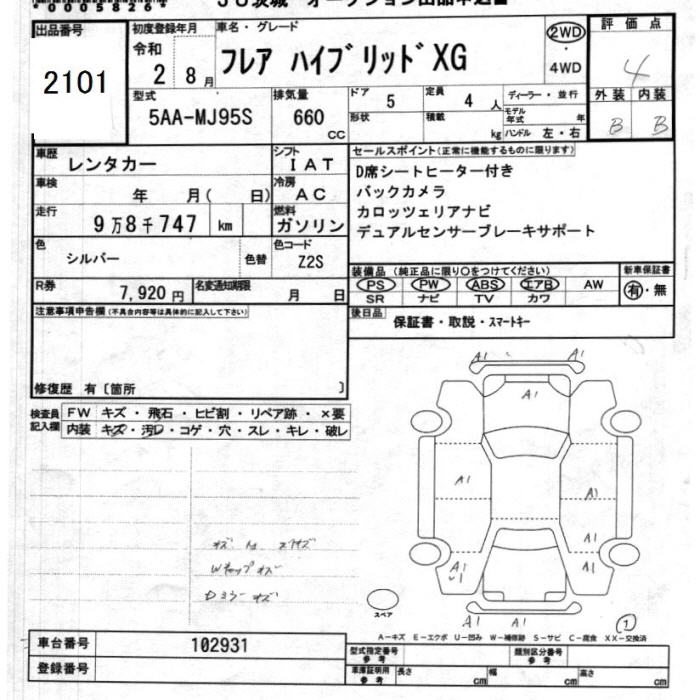 *0005826*
出品番号 2101
初度登録年月 令和 2年 8月
車名・グレード フレア ハイブリッド XG
2WD・4WD
評価点 4
型式 5AA-MJ95S
排気量 660 CC
ドア 5
定員 4人
ディーラー・並行
形状
積載 kg
モデル年式 年
ハンドル 左・右
外装 B
内装 B
車歴 レンタカー
シフト IAT
車検 年 月(日)
冷房 AC
走行 9万8千747 km
燃料 ガソリン
色 シルバー 色替
色コード Z2S
R券 7,920円
名変通知期限 月 日
セールスポイント(正常に機能するものに限ります)
D席シートヒーター付き
バックカメラ
カロッツェリアナビ
デュアルセンサーブレーキサポート
装備品 (純正品に限り○をつけてください)
PS PW ABS エアB AW
SR ナビ TV カワ
新車保証書 有・無
後日品 保証書・取説・スマートキー
注意事項申告欄(不具合内容等は具体的に記入して下さい)
修復歴 有〔箇所 〕
検査員記入欄
FW キズ・飛石・ヒビ割・リペア跡・×要
内装 キズ・汚レ・コゲ・穴・スレ・キレ・破レ
Wキャップキズ
Dミラーキズ
A1 A1
A1
A1 A1
A1
A1 A1
A1 A1
スペア
1
A-キズ E-エクボ U-凹み W-補修跡 S-サビ C-腐食 XX-交換済
車台番号 102931
登録番号
型式指定番号 参考
類別区分番号 参考
車庫証明用 参考 長さ cm 幅 cm 高さ cm